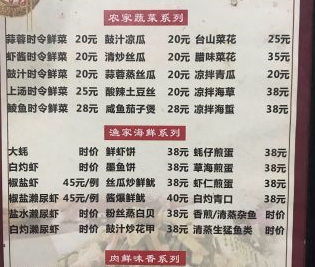 农家蔬菜系列
蒜蓉时令鲜菜 20元 鼓汁凉瓜 20元 台山菜花 25元
虾酱时令鲜菜 20元 清炒丝瓜 20元 腊味菜花 35元
鼓汁时令鲜菜 20元 蒜蓉蒸丝瓜 20元 凉拌青瓜 20元
上汤时令鲜菜 25元 酸辣土豆丝 20元 凉拌海草 38元
鲮鱼时令鲜菜 28元 咸鱼茄子煲 28元 凉拌海蜇 38元
渔家海鲜系列
大蚝 时价 鲜虾饼 38元 蚝仔煎蛋 38元
白灼虾 时价 墨鱼饼 38元 草海煎蛋 38元
椒盐虾 45元/例 丝瓜炒鲜鱿 38元 虾仁煎蛋 38元
椒盐濑尿虾 45元/例 酱爆鲜鱿 40元 白灼青口 38元
盐水濑尿虾 时价 粉丝蒸白贝 38元 香煎/清蒸杂鱼 时价
白灼濑尿虾 时价 鼓汁炒花甲 38元 清蒸生猛鱼类 时价
肉鲜味香系列